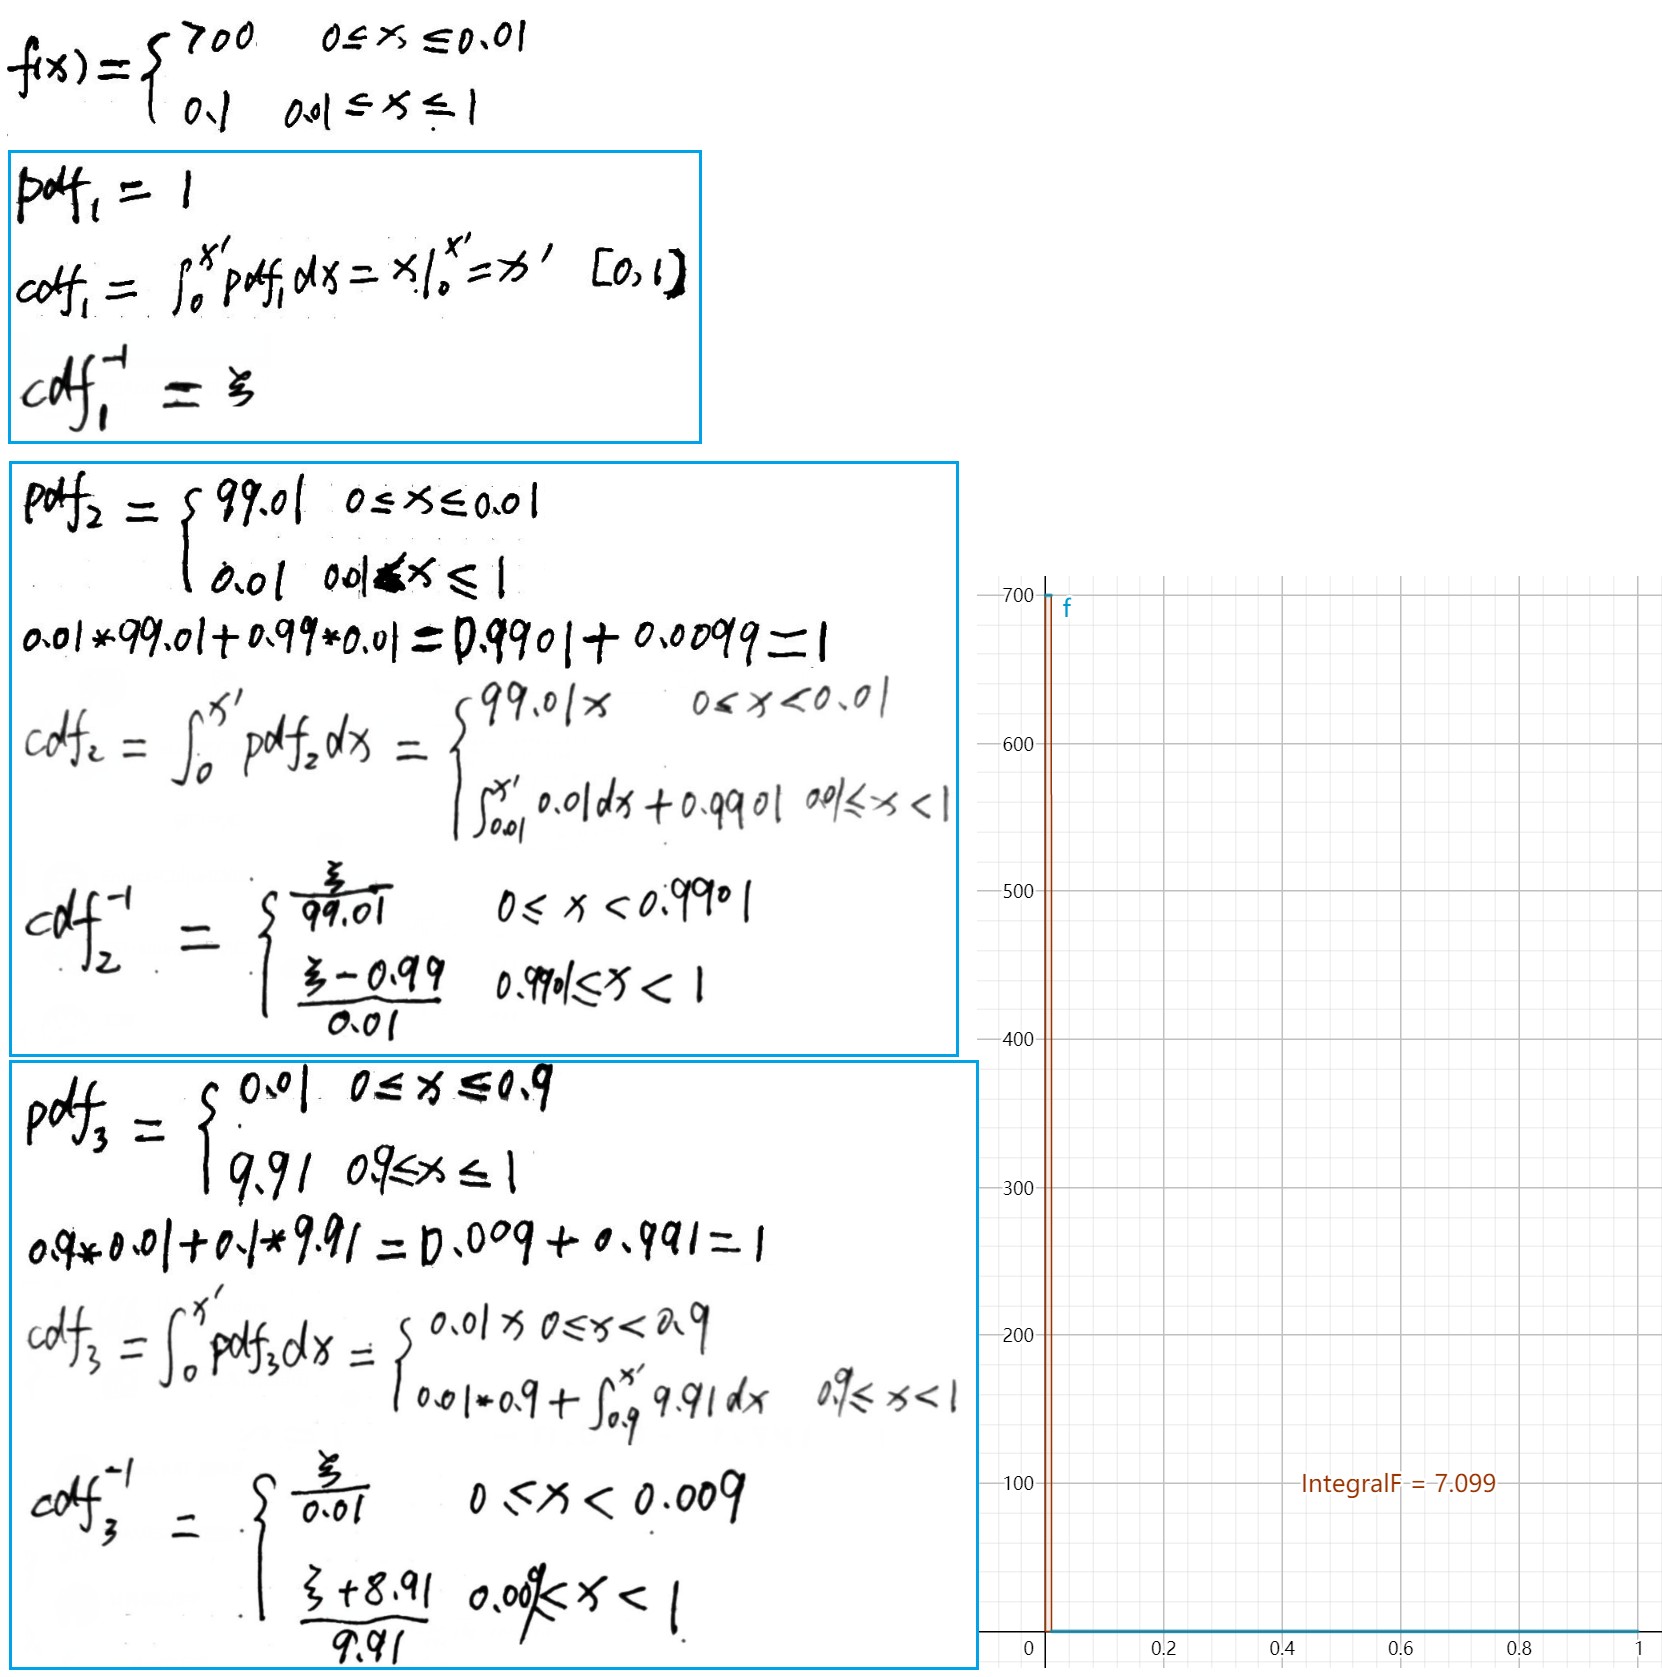 f(x) = { 700 0 ≤ x ≤ 0.01
0.1 0.01 ≤ x ≤ 1
pdf₁ = 1
cdf₁ = ∫₀^x' pdf₁ dx = x|₀^x' = x' [0,1]
cdf₁⁻¹ = ξ
pdf₂ = { 99.01 0 ≤ x ≤ 0.01
0.01 0.01 ≤ x ≤ 1
0.01*99.01+0.99*0.01=0.9901+0.0099=1
cdf₂ = ∫₀^x' pdf₂ dx = { 99.01x 0 ≤ x < 0.01
∫_0.01^x' 0.01dx + 0.9901 0.01 ≤ x < 1
cdf₂⁻¹ = { ξ/99.01 0 ≤ x < 0.9901
(ξ-0.99)/0.01 0.9901 ≤ x < 1
pdf₃ = { 0.01 0 ≤ x ≤ 0.9
9.91 0.9 ≤ x ≤ 1
0.9*0.01+0.1*9.91=0.009+0.991=1
cdf₃ = ∫₀^x' pdf₃ dx = { 0.01x 0 ≤ x < 0.9
0.01*0.9 + ∫_0.9^x' 9.91dx 0.9 ≤ x < 1
cdf₃⁻¹ = { ξ/0.01 0 ≤ x < 0.009
(ξ+8.91)/9.91 0.009 ≤ x < 1
700
f
600
500
400
300
200
100
IntegralF = 7.099
0 0.2 0.4 0.6 0.8 1